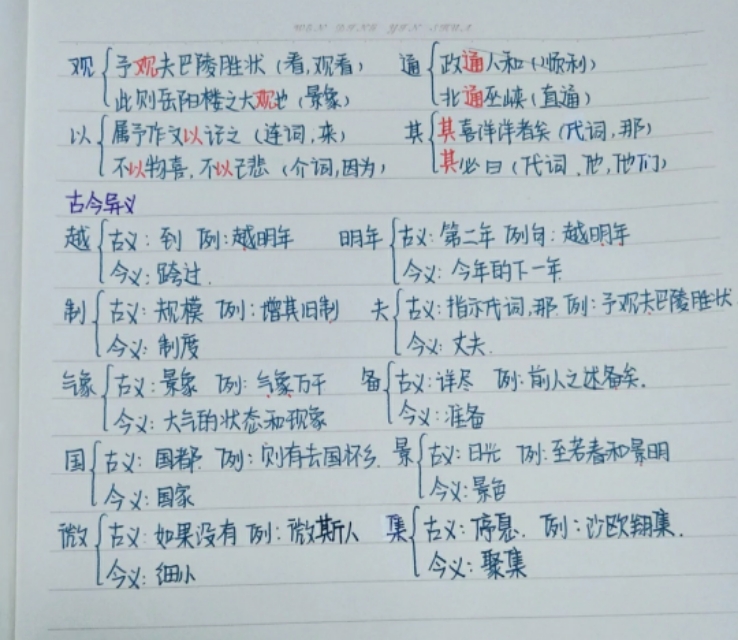 观 予观夫巴陵胜状（看,观看） 通 政通人和（顺利）
此则岳阳楼之大观也（景象） 北通巫峡（直通）
以 属予作文以记之（连词,来） 其 其喜洋洋者矣（代词,那）
不以物喜,不以己悲（介词,因为） 其必曰（代词,他,他们）
古今异义
越 古义:到 例:越明年 明年 古义:第二年 例句:越明年
今义:跨过. 今义:今年的下一年
制 古义:规模 例:增其旧制 夫 古义:指示代词,那. 例:予观夫巴陵胜状
今义:制度 今义:丈夫.
气象 古义:景象 例:气象万千 备 古义:详尽 例:前人之述备矣.
今义:大气的状态和现象 今义:准备
国 古义:国都. 例:则有去国怀乡. 景 古义:日光 例:至若春和景明
今义:国家 今义:景色
微 古义:如果没有 例:微斯人 集 古义:停息. 例:沙欧翔集.
今义:细小 今义:聚集